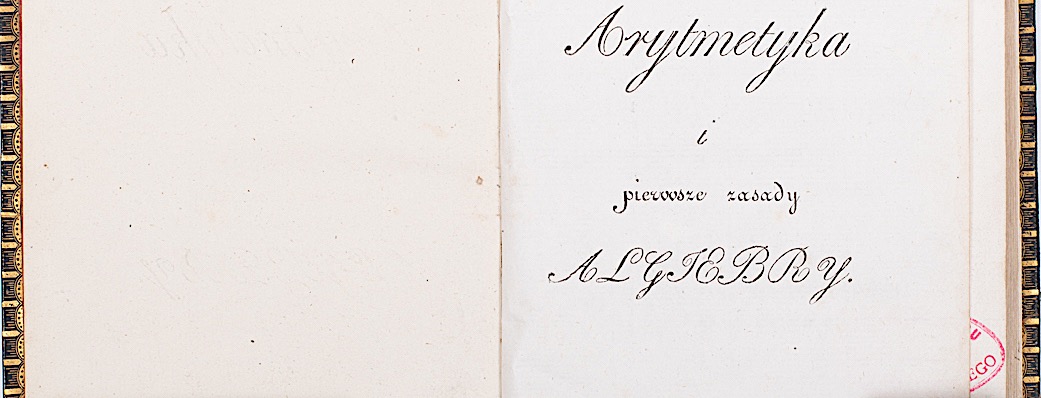 Arytmetyka
i
pierwsze zasady
ALGIEBRY.
EGO